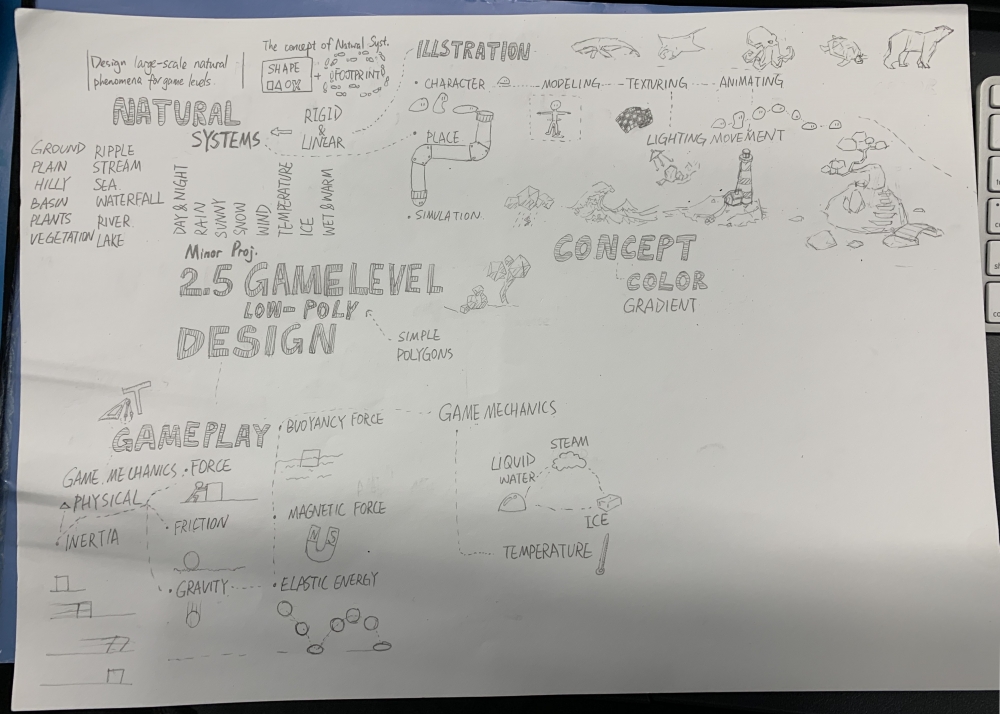 Design large-scale natural
phenomena for game levels.
The concept of Natural Syst.
SHAPE
+
FOOTPRINT
NATURAL
SYSTEMS
RIGID
&
LINEAR
GROUND
PLAIN
HILLY
BASIN
PLANTS
VEGETATION
RIPPLE
STREAM
SEA
WATERFALL
RIVER
LAKE
DAY & NIGHT
RAIN
SUNNY
SNOW
WIND
TEMPERATURE
ICE
WET & WARM
ILLSTRATION
• CHARACTER
MODELING
TEXTURING
ANIMATING
LIGHTING
MOVEMENT
• PLACE
• SIMULATION
CONCEPT
COLOR
GRADIENT
Minor Proj.
2.5 GAME LEVEL
LOW-POLY
DESIGN
SIMPLE
POLYGONS
GAMEPLAY
GAME MECHANICS
PHYSICAL
• INERTIA
• FORCE
• FRICTION
• GRAVITY
• BUOYANCY FORCE
• MAGNETIC FORCE
N S
• ELASTIC ENERGY
GAME MECHANICS
STEAM
LIQUID
WATER
ICE
TEMPERATURE